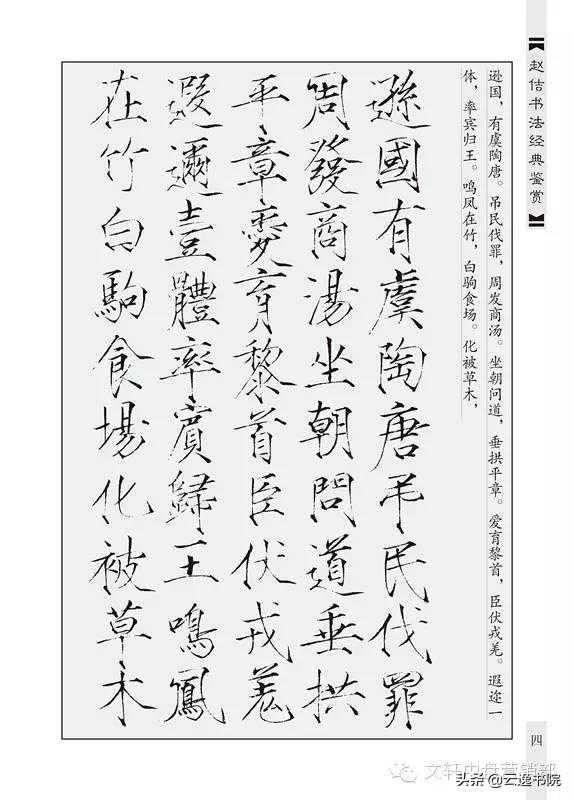 赵佶书法经典鉴赏
逊国，有虞陶唐。吊民伐罪，周发商汤。坐朝问道，垂拱平章。爱育黎首，臣伏戎羌。遐迩一
体，率宾归王。鸣凤在竹，白驹食场。化被草木，
遜國有虞陶唐弔民伐罪
周發商湯坐朝問道垂拱
平章愛育黎首臣伏戎羌
遐邇壹體率賓歸王鳴鳳
在竹白駒食場化被草木
四
文轩中盘营销部
头条 @云逸书院